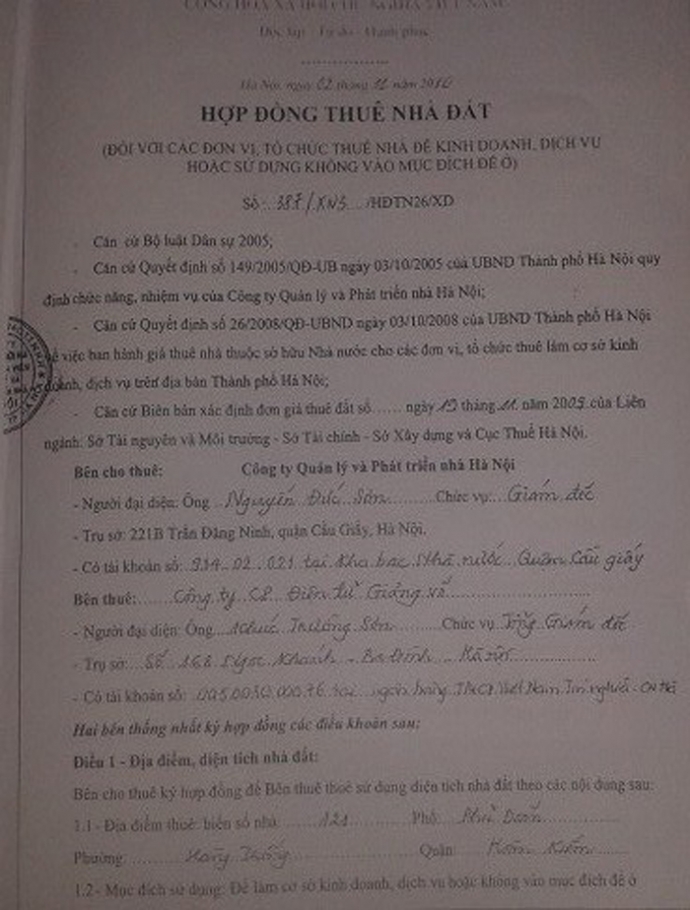 CỘNG HÒA XÃ HỘI CHỦ NGHĨA VIỆT NAM
Độc lập - Tự do - Hạnh phúc
Hà Nội, ngày 02 tháng 12 năm 2010
HỢP ĐỒNG THUÊ NHÀ ĐẤT
(ĐỐI VỚI CÁC ĐƠN VỊ, TỔ CHỨC THUÊ NHÀ ĐỂ KINH DOANH, DỊCH VỤ
HOẶC SỬ DỤNG KHÔNG VÀO MỤC ĐÍCH ĐỂ Ở)
Số: 387/XN3 /HĐTN26/XD
- Căn cứ Bộ luật Dân sự 2005;
- Căn cứ Quyết định số 149/2005/QĐ-UB ngày 03/10/2005 của UBND Thành phố Hà Nội quy
định chức năng, nhiệm vụ của Công ty Quản lý và Phát triển nhà Hà Nội;
- Căn cứ Quyết định số 26/2008/QĐ-UBND ngày 03/10/2008 của UBND Thành phố Hà Nội
về việc ban hành giá thuê nhà thuộc sở hữu Nhà nước cho các đơn vị, tổ chức thuê làm cơ sở kinh
doanh, dịch vụ trên địa bàn Thành phố Hà Nội;
- Căn cứ Biên bản xác định đơn giá thuê đất số...... ngày 19 tháng 11 năm 2009 của Liên
ngành: Sở Tài nguyên và Môi trường - Sở Tài chính - Sở Xây dựng và Cục Thuế Hà Nội.
Bên cho thuê: Công ty Quản lý và Phát triển nhà Hà Nội
- Người đại diện: Ông Nguyễn Đức Sơn Chức vụ: Giám đốc
- Trụ sở: 221B Trần Đăng Ninh, quận Cầu Giấy, Hà Nội.
- Có tài khoản số: 934.02.021 tại Kho bạc Nhà nước Quận Cầu giấy
Bên thuê: Công ty CP Điện tử Giảng võ
- Người đại diện: Ông Trường Sơn Chức vụ Tổng Giám đốc
- Trụ sở: Số 168 Ngọc Khánh - Ba Đình - Hà nội
- Có tài khoản số: tại ngân hàng TMCP Việt Nam Tín nghĩa - CN Hà
Hai bên thống nhất ký hợp đồng các điều khoản sau:
Điều 1 - Địa điểm, diện tích nhà đất:
Bên cho thuê ký hợp đồng để Bên thuê thuê sử dụng diện tích nhà đất theo các nội dung sau:
1.1 - Địa điểm thuê: biển số nhà: 121 Phố: Phủ Doãn
Phường: Hàng Trống Quận: Hoàn Kiếm
1.2 - Mục đích sử dụng: Để làm cơ sở kinh doanh, dịch vụ hoặc không vào mục đích để ở